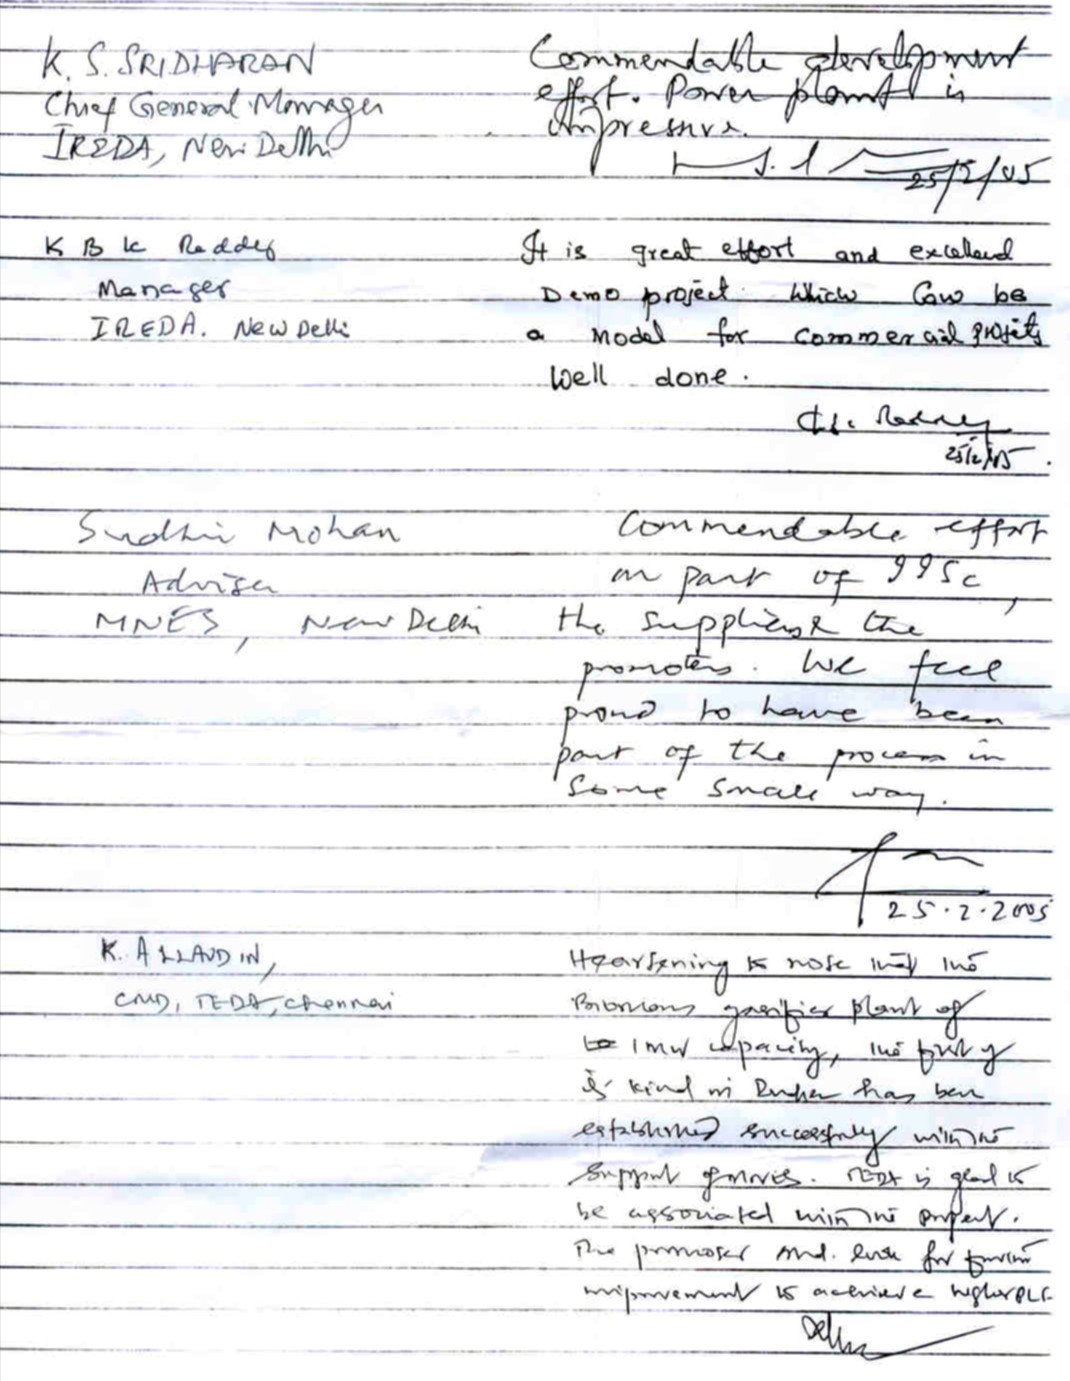 K. S. SRIDHARAN
Chief General Manager
IREDA, New Delhi
Commendable development
effort. Power plant is
impressive.
25/2/05
K B K Reddy
Manager
IREDA. New Delhi
It is great effort and
Demo project which can be
a model for commercial projects
Well done.
Reddy
25/2/05.
Sudhir Mohan
Adviser
MNES, New Delhi
Commendable effort
on part of
the suppliers & the
promoters. We feel
proud to have been
part of the process in
some small way.
25.2.2005
K. ALLAUDIN,
CMD, TEDA, Chennai
Heartening to note that the
Biomass gasifier plant of
1 MW capacity, the first of
its kind in has been
established successfully with the
support of MNES. TEDA is glad to
be associated with the project.
The promoter for further
improvement to achieve higher PLF